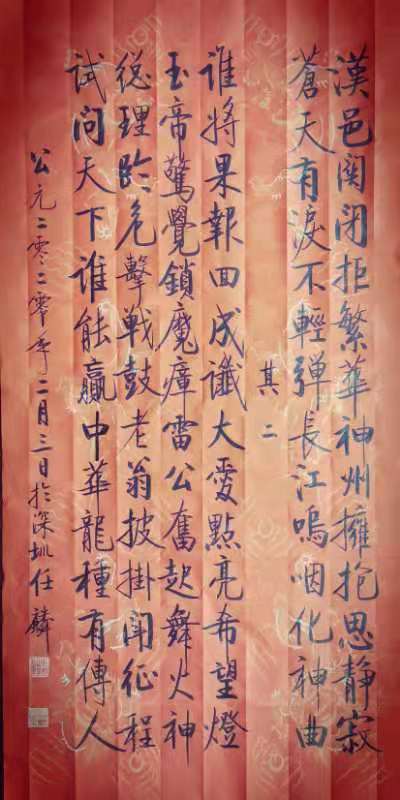 漢邑関闭拒繁華神州擁抱思靜寂
蒼天有淚不輕彈長江嗚咽化神曲
其二
誰將果報回成讖大愛點亮希望燈
玉帝驚覺鎖魔瘴雷公奮起舞火神
総理臨危擊戦鼓老翁披掛闻征程
試問天下谁能贏中華龍種有傳人
公元二零二零年二月三日於深圳任麟